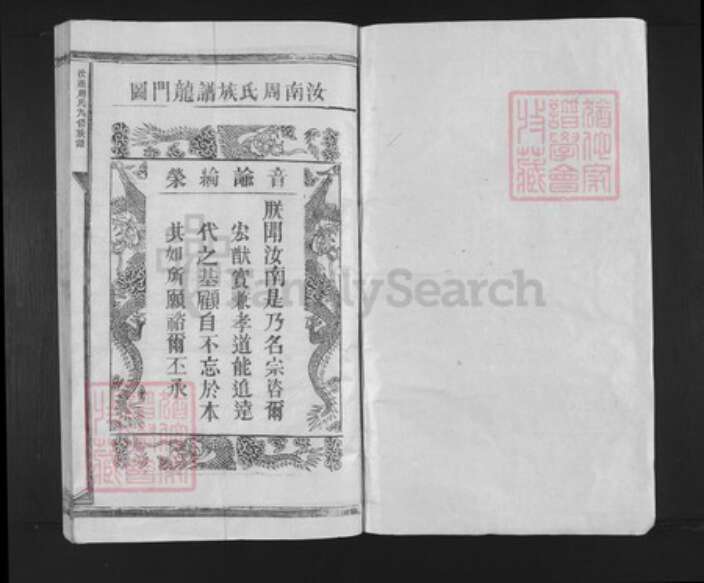 汝南周氏族譜龍門圖
音諭綸榮
朕聞汝南是乃名宗咨爾
宏猷實兼孝道能追遠
代之基顧自不忘於本
其如所願裕爾丕承
FamilySearch